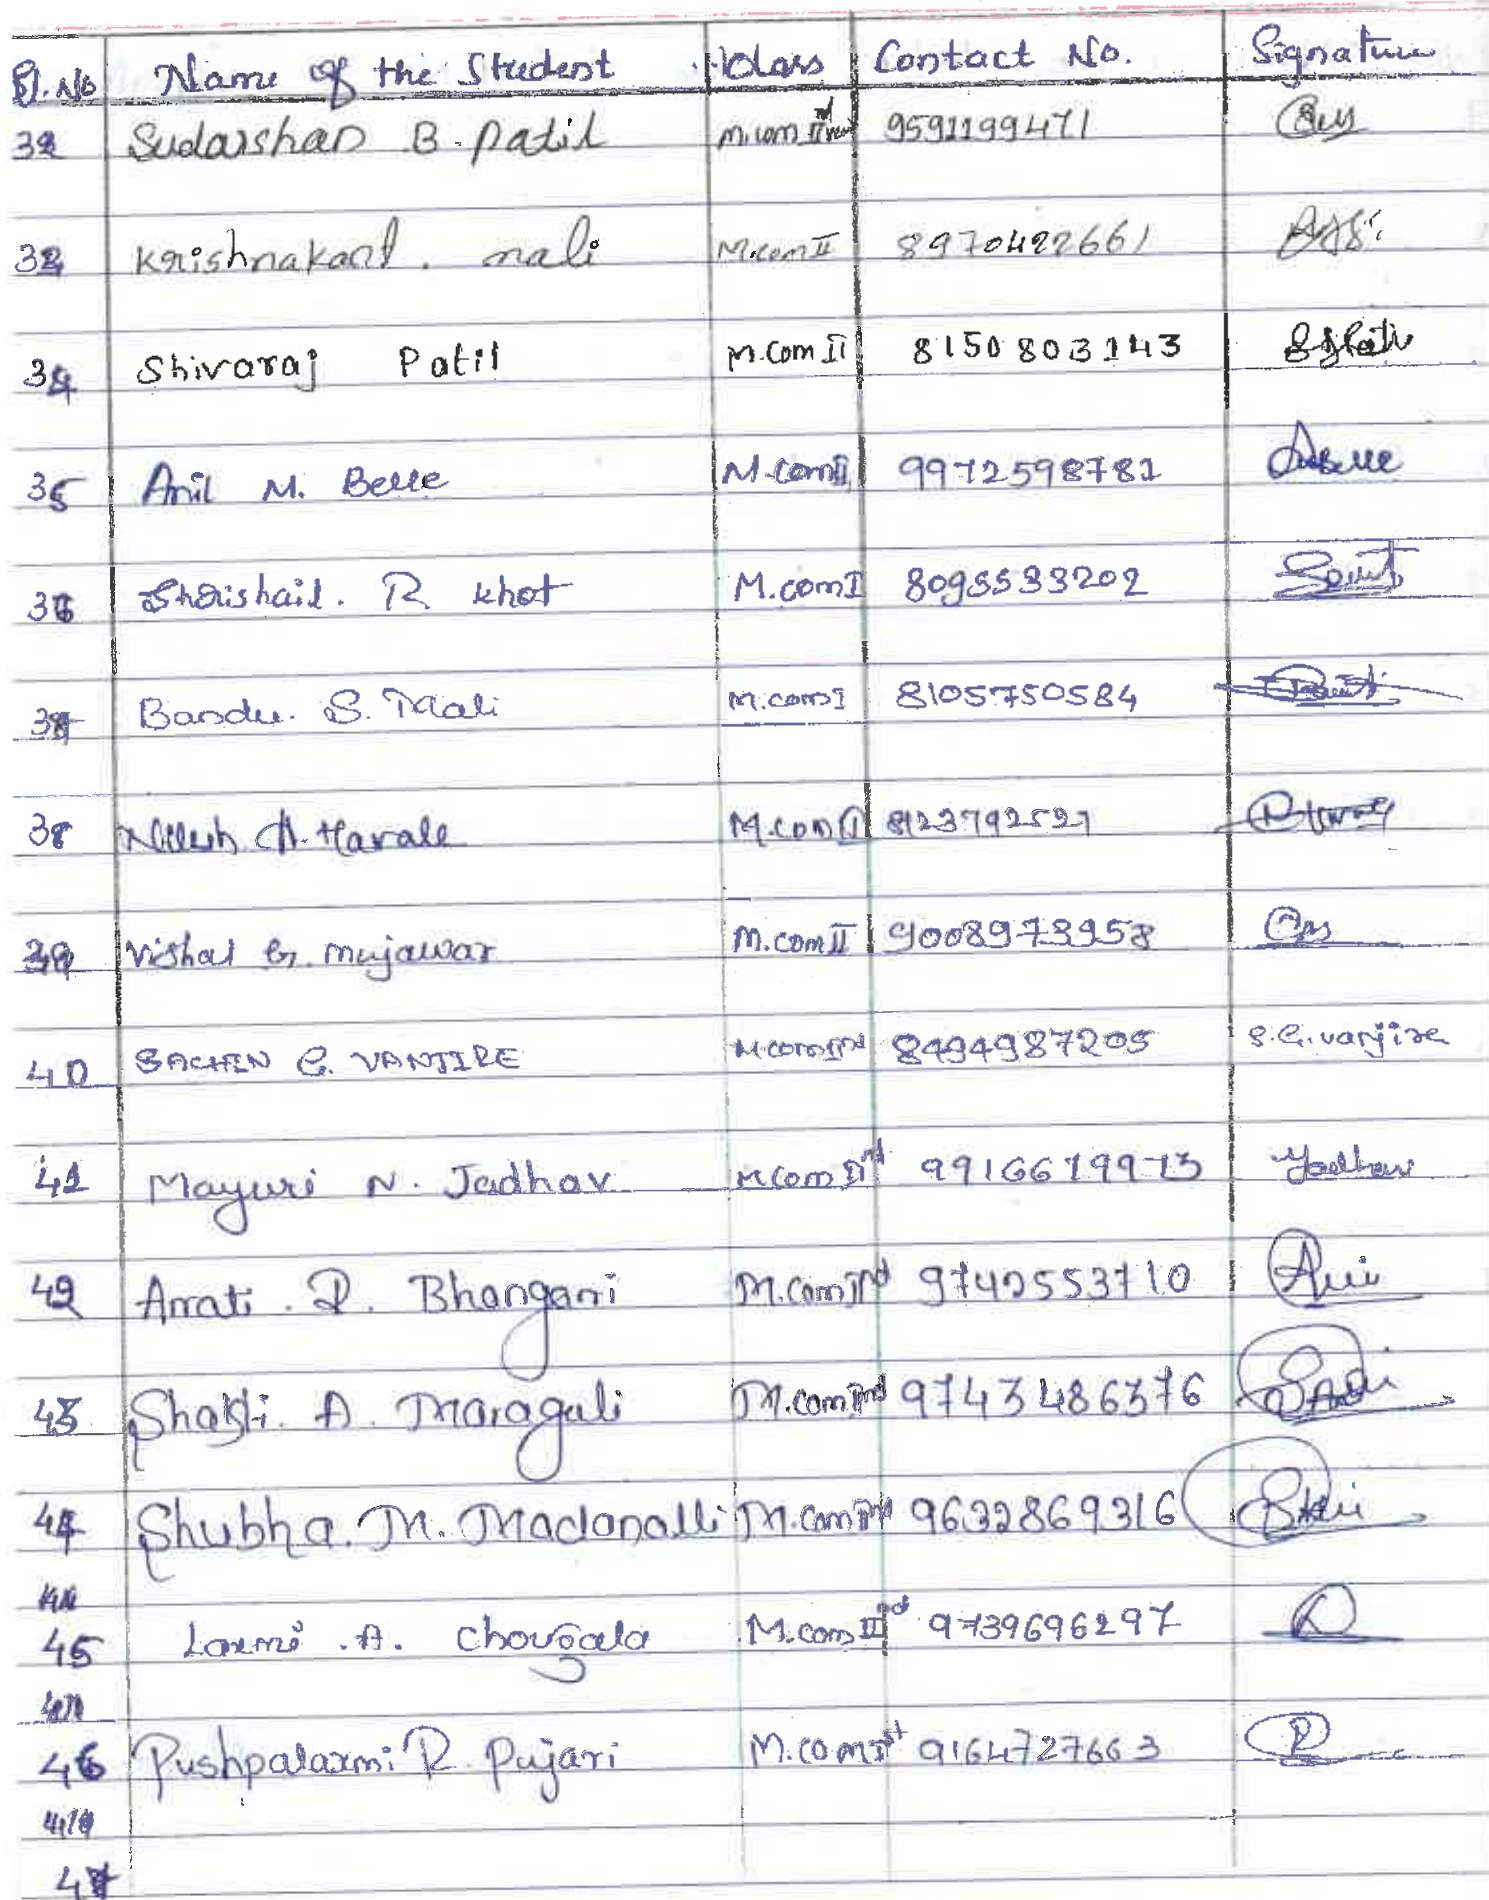 Sl.No Name of the Student Class Contact No. Signature
32 Sudarshan B. Patil M.com IInd year 9591199471
33 Krishnakant. mali M.com II 8970422661
34 Shivaraj Patil M.Com II 8150803143
35 Anil M. Belle M.com II 9972598781
36 Shrishail. R khot M.com I 8095533202
37 Bandu. S. Mali M.com I 8105750584
38 Nilesh A. Harale M.com I 8123792521
39 Vishal G. mujawar M.com II 9008973958
40 SACHIN G. VANJIRE M.com IInd 8494987205 S.G.vanjire
41 Mayuri N. Jadhav M.Com IInd 9916679973 Jadhav
42 Arrati. D. Bhangari M.Com IInd 9742553710
43 Shakti. A. Maragali M.com IInd 9743486376
44 Shubha. M. Madanalli M.Com IInd 9632869316
45 Laxmi .A. Chougala M.com IInd 9739696297
46 Pushpalaxmi R. Pujari M.com Ist 9164727663
47